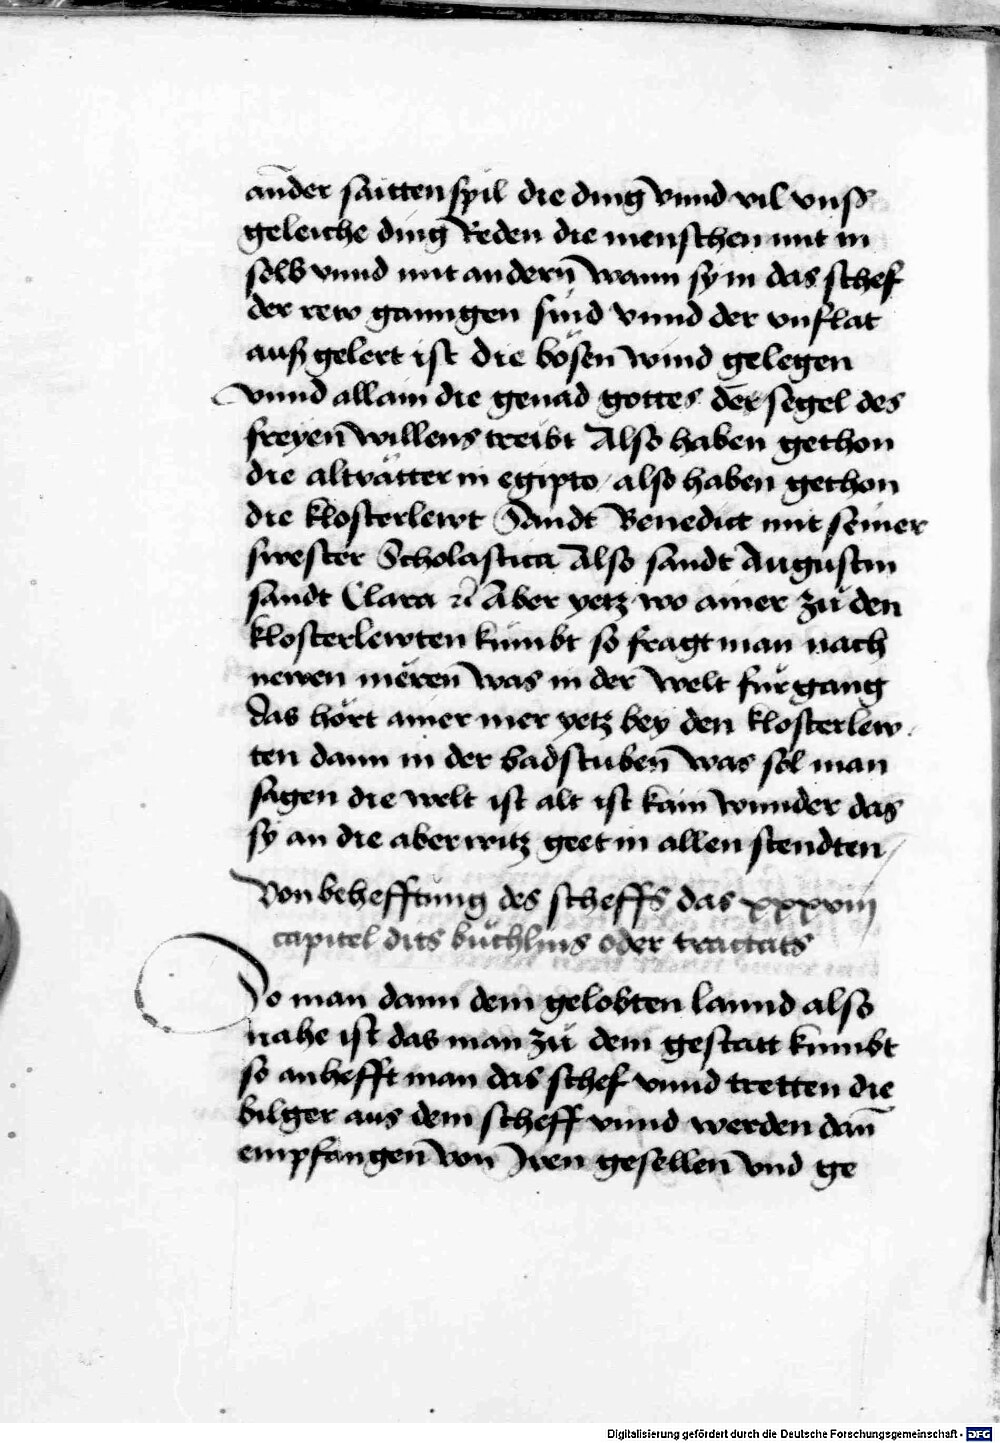 annder saittenspil die ding vnnd vil vnss
geleiche ding Reden die menschen mit in
selb vnnd mit andern̄ wann sy in das schef
der rew ganngen sind vnnd der vnflat
auß gelert ist die bösen wind gelegen
vnnd allain die genad gottes der segel des
freyen̄ willens treibt Also haben gethon
die altvätter in egipto / also haben gethon
die klosterlewt Sandt Benedict mit seiner
swester Scholastica Also sandt Augustin
sandt Clara ⁊c Aber yetz wo ainer zů den
klosterlewten kumbt so fragt man nach
newen mëren̄ was in der welt für gang
das hört ainer mer yetz bey den klosterlew
ten dann in der badstuben̄ was sol man
sagen die welt ist alt ist kain wunder das
sy an die aberwitz geet in allen stendten /
Von behefftung des scheffs das xxxviij
capitel dits büchlins oder tractats
So man dann dem gelobten lannd also
nahe ist das man zů dem gestatt kumbt
so anhefft man das schef vnnd tretten die
bilger aus dem scheff vnnd werden dan̄
empfangen̄ von Iren gesellen̄ vnd ge
Digitalisierung gefördert durch die Deutsche Forschungsgemeinschaft - DFG